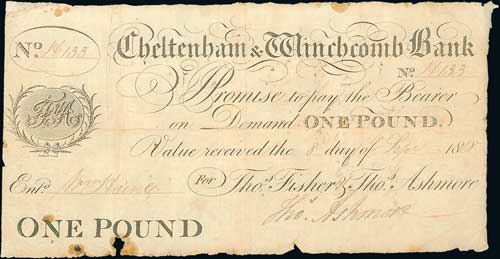 Cheltenham & Winchcomb Bank
No. 14133
No. 14133
I Promise to pay the Bearer
on Demand ONE POUND.
Value received the 8 day of 18
Entd.
For Thos. Fisher & Thos. Ashmore
Thos. Ashmore
ONE POUND